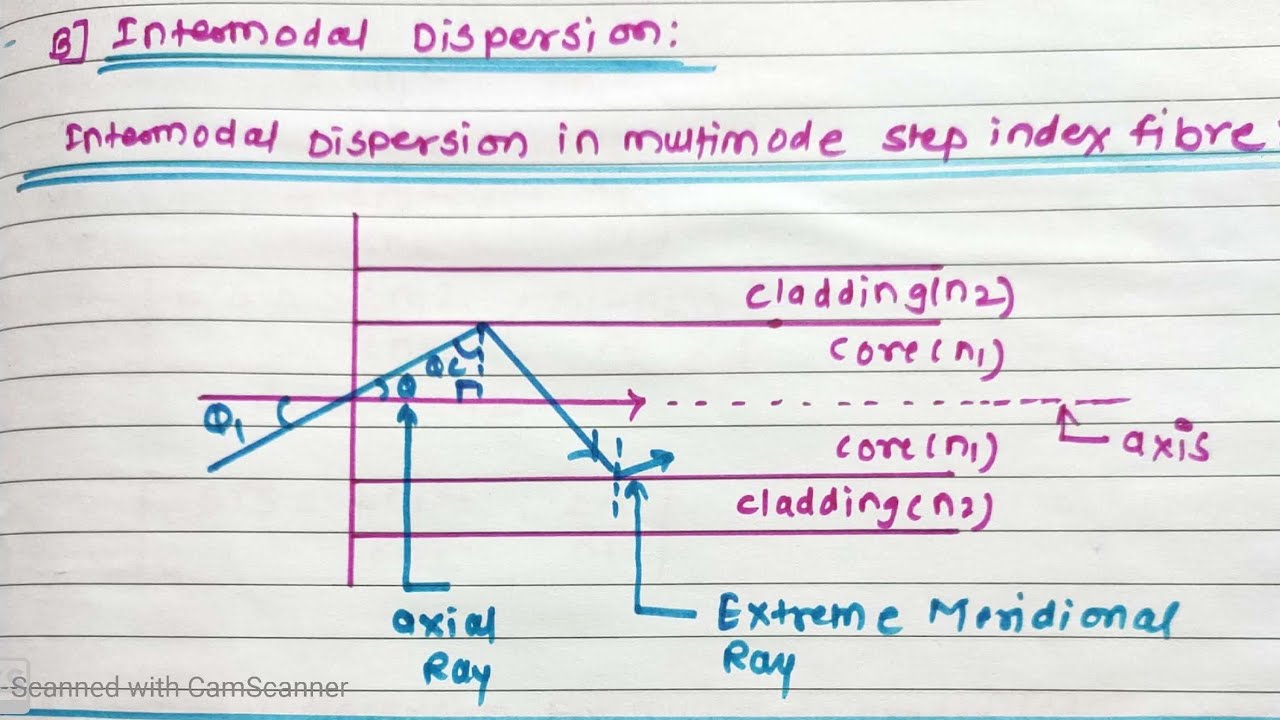 B] Intermodal Dispersion:
Intermodal Dispersion in multimode step index fibre:
cladding(n2)
core(n1)
θ
θc
θ1
core(n1)
axis
cladding(n2)
axial
Ray
Extreme Meridional
Ray
Scanned with CamScanner